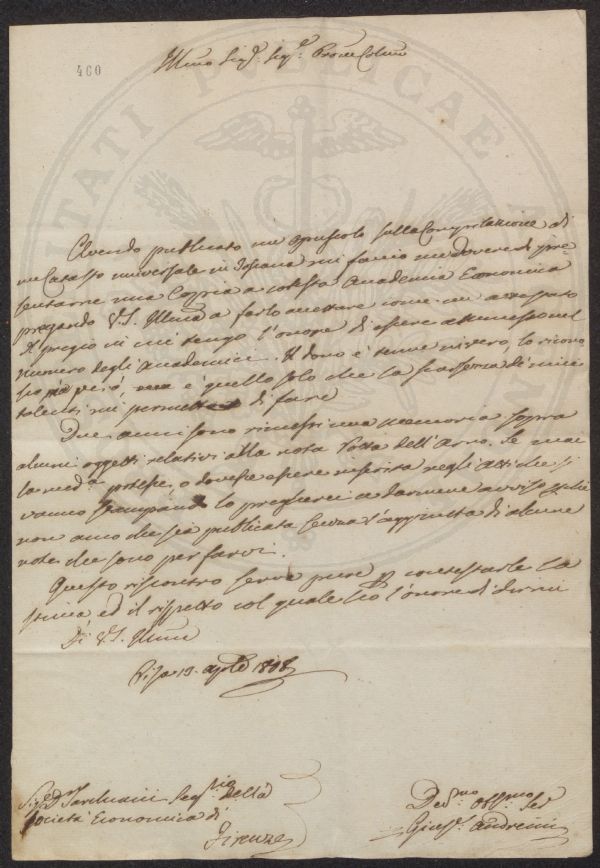 460
Illmo Sigr. Sigr. Prone Colmo
Avendo publicato un opuscolo sulla Compilazione di
un Catasto universale in Toscana mi faccio un dovere di pre
sentarne una Coppia a cotesta Accademia Economica
pregando V.S. Illma a farlo accettare come un attestato
del pregio in cui tengo l'onore di essere ammesso nel
numero degli Accademici. Il dono è tenue in vero, lo ricono
sco però è quello solo che la scarsezza di miei
talenti mi permette di fare
Due anni sono rimessi una memoria sopra
alcuni oggetti relativi alla nota Botta dell'Arno. Se mai
la meda. potesse, o dovesse essere inserita negli atti che si
vanno stampando lo pregherei a darmene avviso
non amo che sia publicata senza l'aggiunta di alcune
note che sono per farvi.
Questo riscontro serva pure p. contestarle la
stima ed il rispetto col quale ho l'onore di dirmi
Di V.S. Illma
Pisa 19. 1808
Sigr. Dr. Tartini Segrio della
Società Economica di
Firenze
Devmo. Obbmo. Ser
Giusp. Andreini